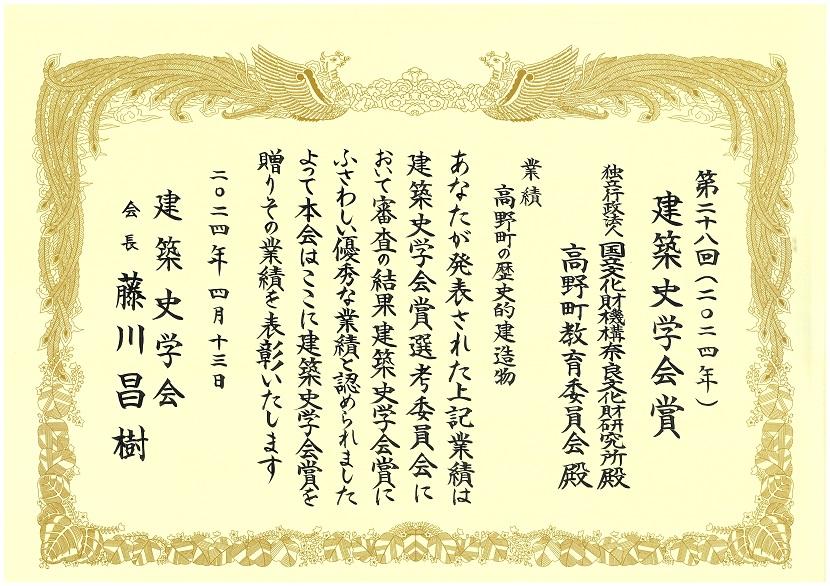 第二十八回(二〇二四年)
建築史学会賞
独立行政法人 国立文化財機構奈良文化財研究所殿
高野町教育委員会殿
業績
高野町の歴史的建造物
あなたが発表された上記業績は
建築史学会賞選考委員会に
おいて審査の結果建築史学会賞に
ふさわしい優秀な業績と認められました
よって本会はここに建築史学会賞を
贈りその業績を表彰いたします
二〇二四年 四月十三日
建築史学会
会長 藤川昌樹